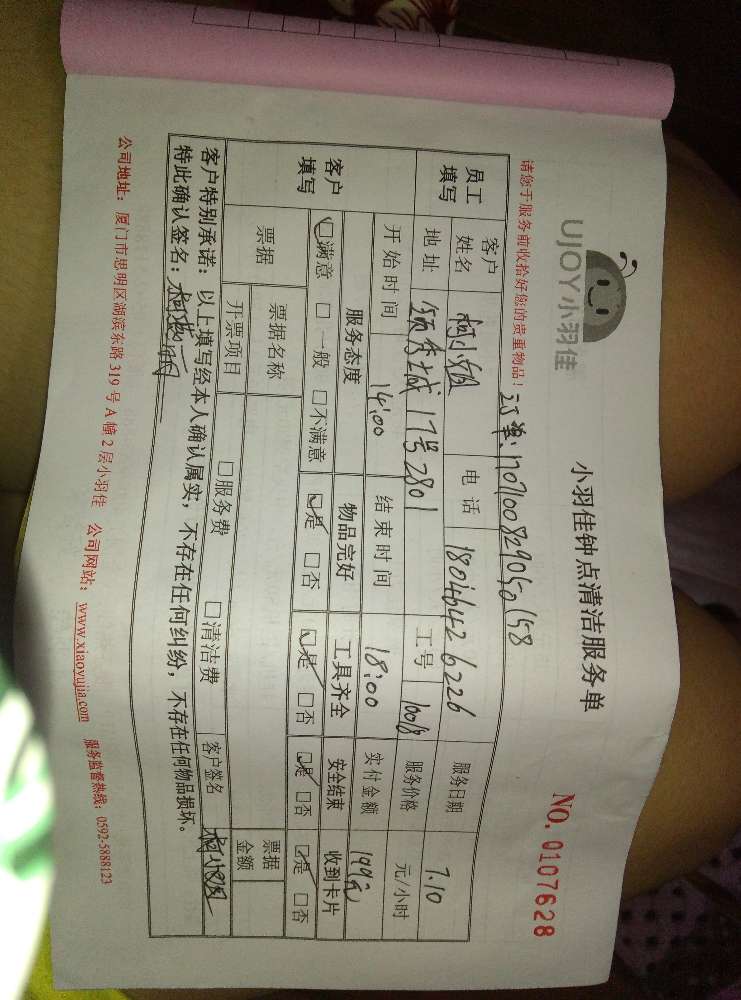 UJOY小羽佳
小羽佳钟点清洁服务单
NO. 0107628
请您于服务前收拾好您的贵重物品！
订单:170700829050158
员工填写
客户姓名 柯小姐 电话 18046426226 服务日期 7.10
地址 领秀城17号2801 工号 1008 服务价格 元/小时
开始时间 14:00 结束时间 18:00 实付金额 199元
客户填写
服务态度 物品完好 工具齐全 安全结束 收到卡片
☑满意 □一般 □不满意 ☑是 □否 ☑是 □否 ☑是 □否 ☑是 □否
票据 票据名称 票据金额
开票项目 □服务费 □清洁费 客户签名
客户特别承诺：以上填写经本人确认属实，不存在任何纠纷，不存在任何物品损坏。
特此确认签名：
公司地址：厦门市思明区湖滨东路319号A幢2层小羽佳 公司网站：www.xiaoyujia.com 服务监督热线：0592-5888123